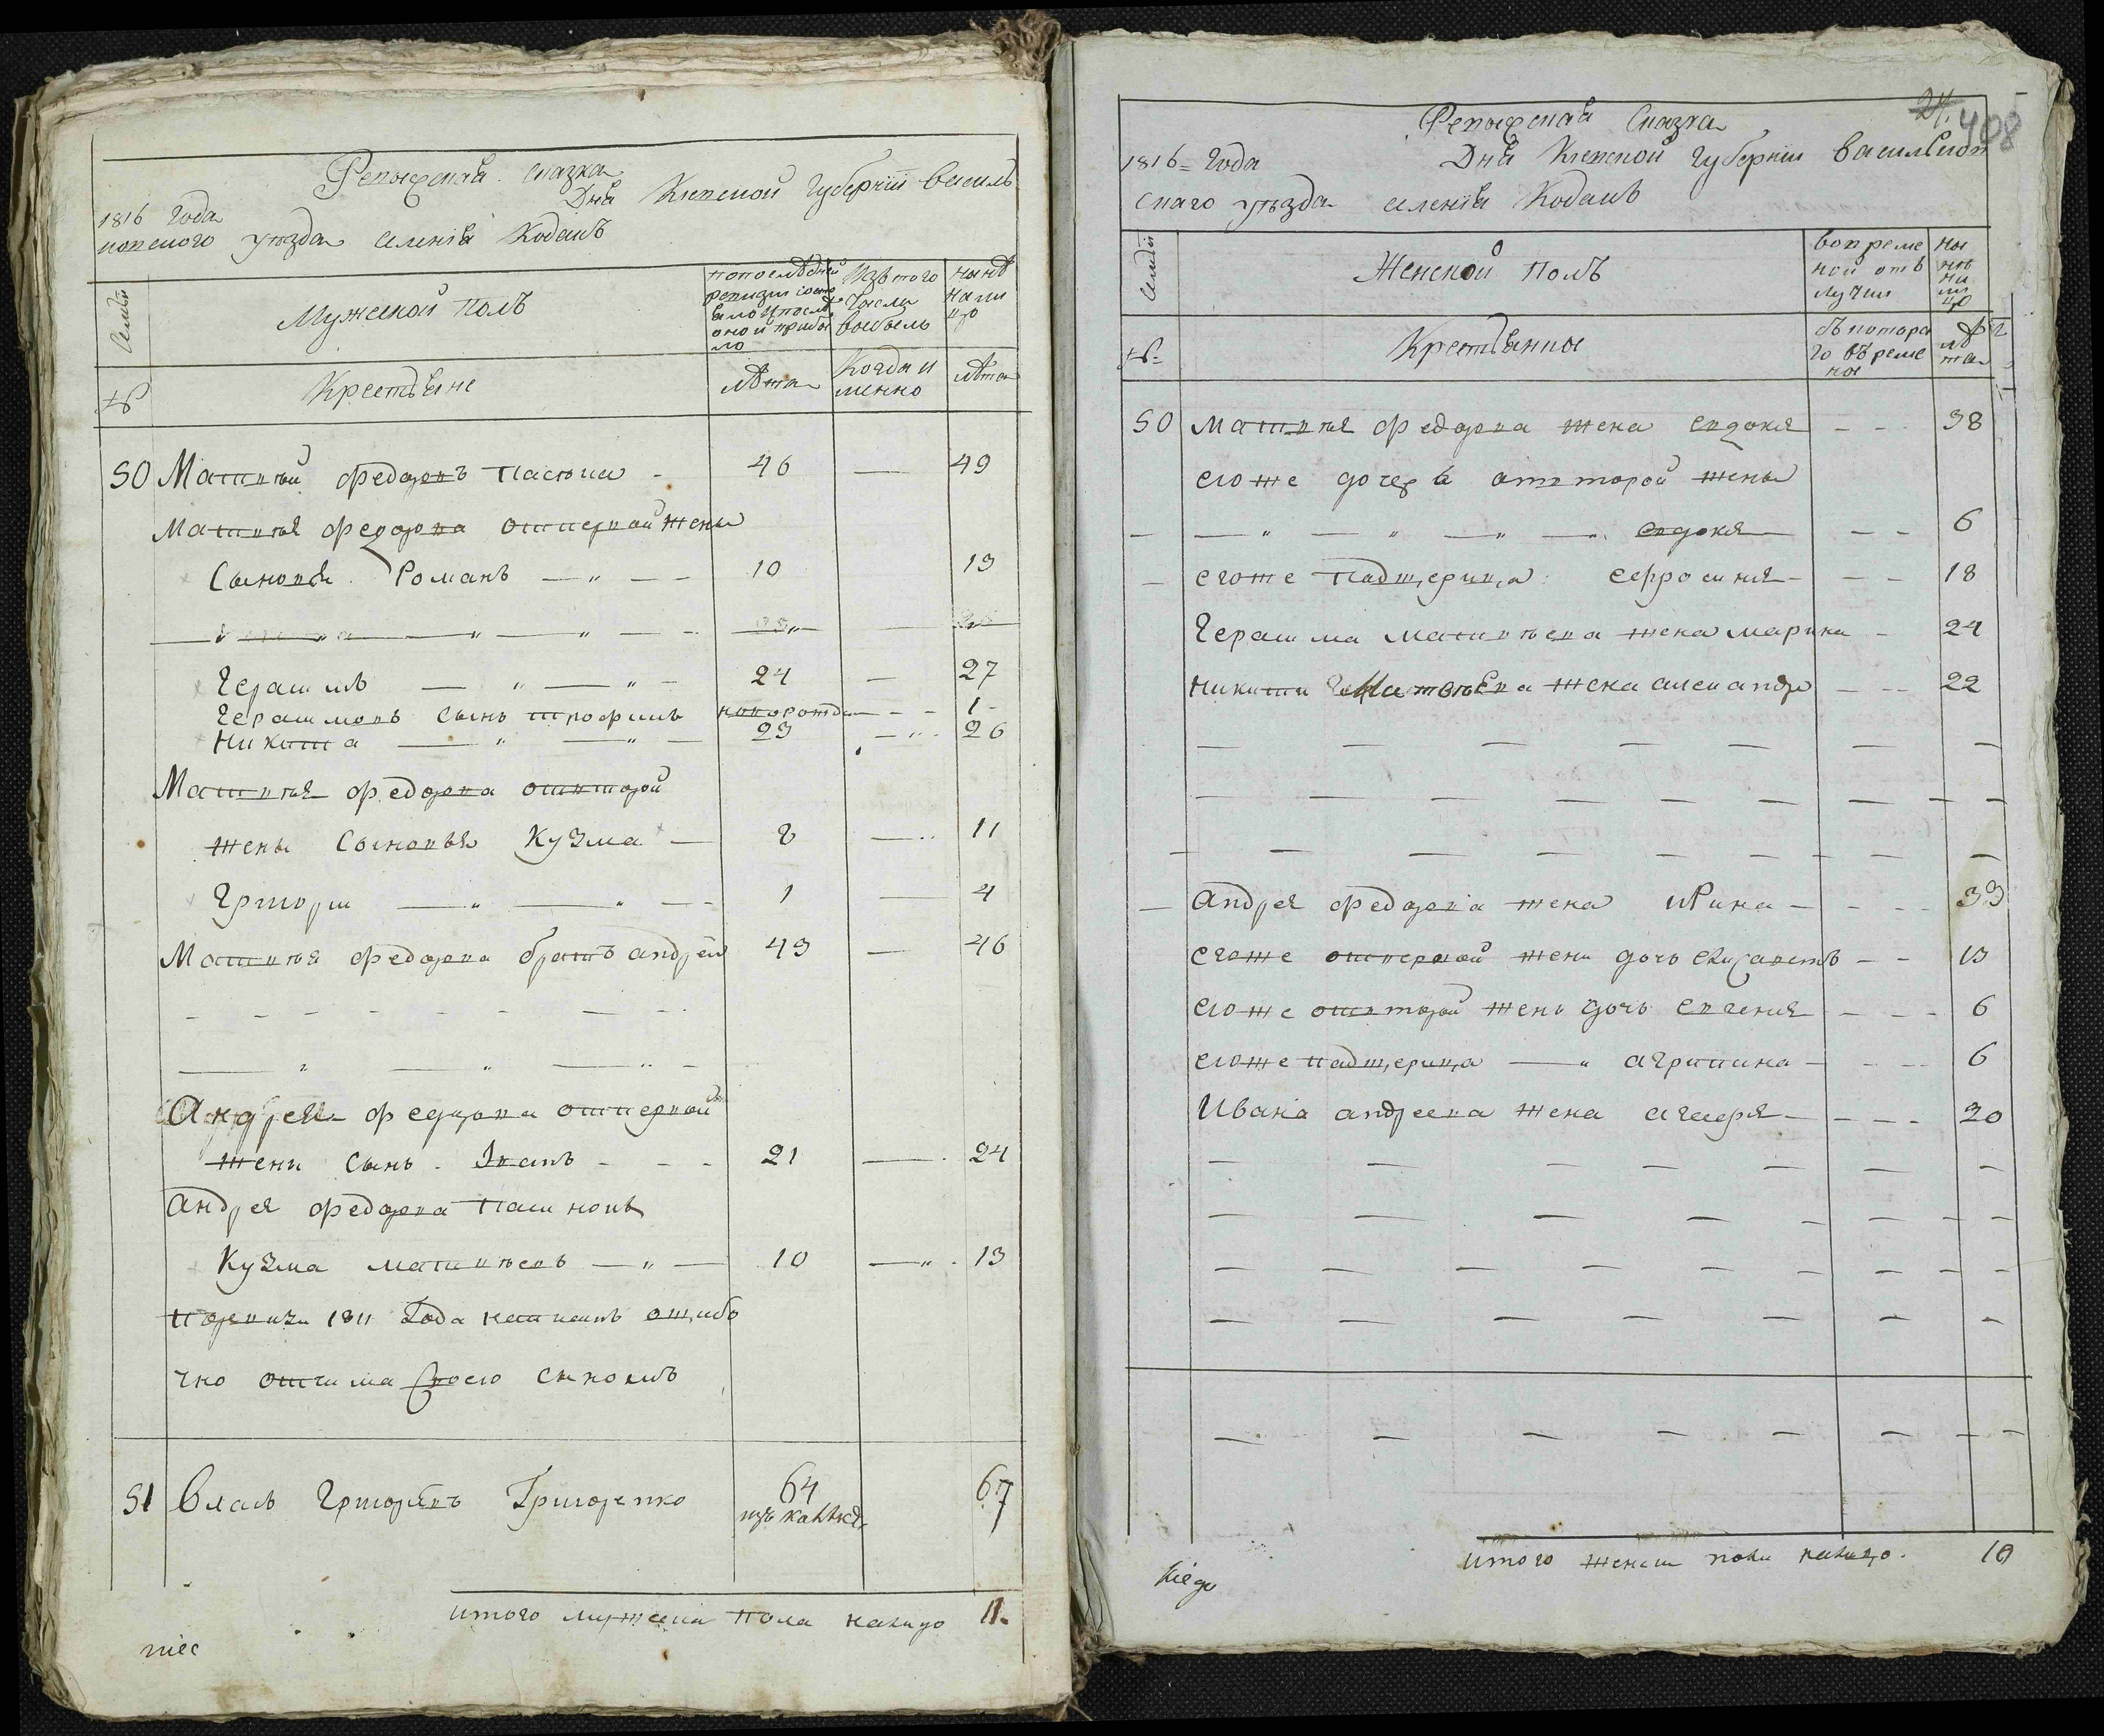 Ревизская сказка
1816 года Дня Киевской губернии василь
ковского уезда селения Кодакъ
семьи
Мужеской полъ
попоследней ревизии состояло и после оной прибыло
Изътого числа выбыло
ныне налицо
№
Крестьяне
лета
Когда именно
лета
50 Матвей федоровъ 46 — 49
Матвея федорова отпервой жены
Сыновья Романъ — 10 13
Герасимъ — 24 — 27
Герасимовъ сынъ трофимъ новорожден — 1
Никита — 23 — 26
Матвея федорова отвторой
жены Сыновья Кузма — 8 — 11
Григорий — 1 — 4
Матвея федорова братъ андрей 43 — 46
Андрея федорова отпервой
жени сынъ Иванъ - - - 21 — 24
андрея федорова пасинокъ
Кузма матвеевъ — 10 — 13
поревизи 1811 Года написанъ ошибо
чно отчима своего сыномъ
51 Власъ Григорьевъ Григоренко 64 67
итого мужеска пола налицо 11.
24. 408
Ревизская Сказка
1816 = года Дня Киевской губернии васильков
скаго уезда селения Кодакъ
семьи
Женской полъ
вовременной отлучки
ныне налицо
№
Крестьянки
съкотораго времены
лета
50 матвея федорова жена евдокия - - 38
егоже дочеръ отвторой жены
— евдокия — - - 6
— егоже падщерица евфросиния - - - 18
Герасима матвеева жена марина - 24
никити Матвеева жена александра — - - 22
— андрея федорова жена ирина - - - 33
егоже отпервой жени дочь елисаветъ - - 13
егоже отвторой жени дочь евгения - - - 6
егоже падщерица — агрипина - - - 6
Ивана андреева жена - - - 20
итого женска пола налицо. 10